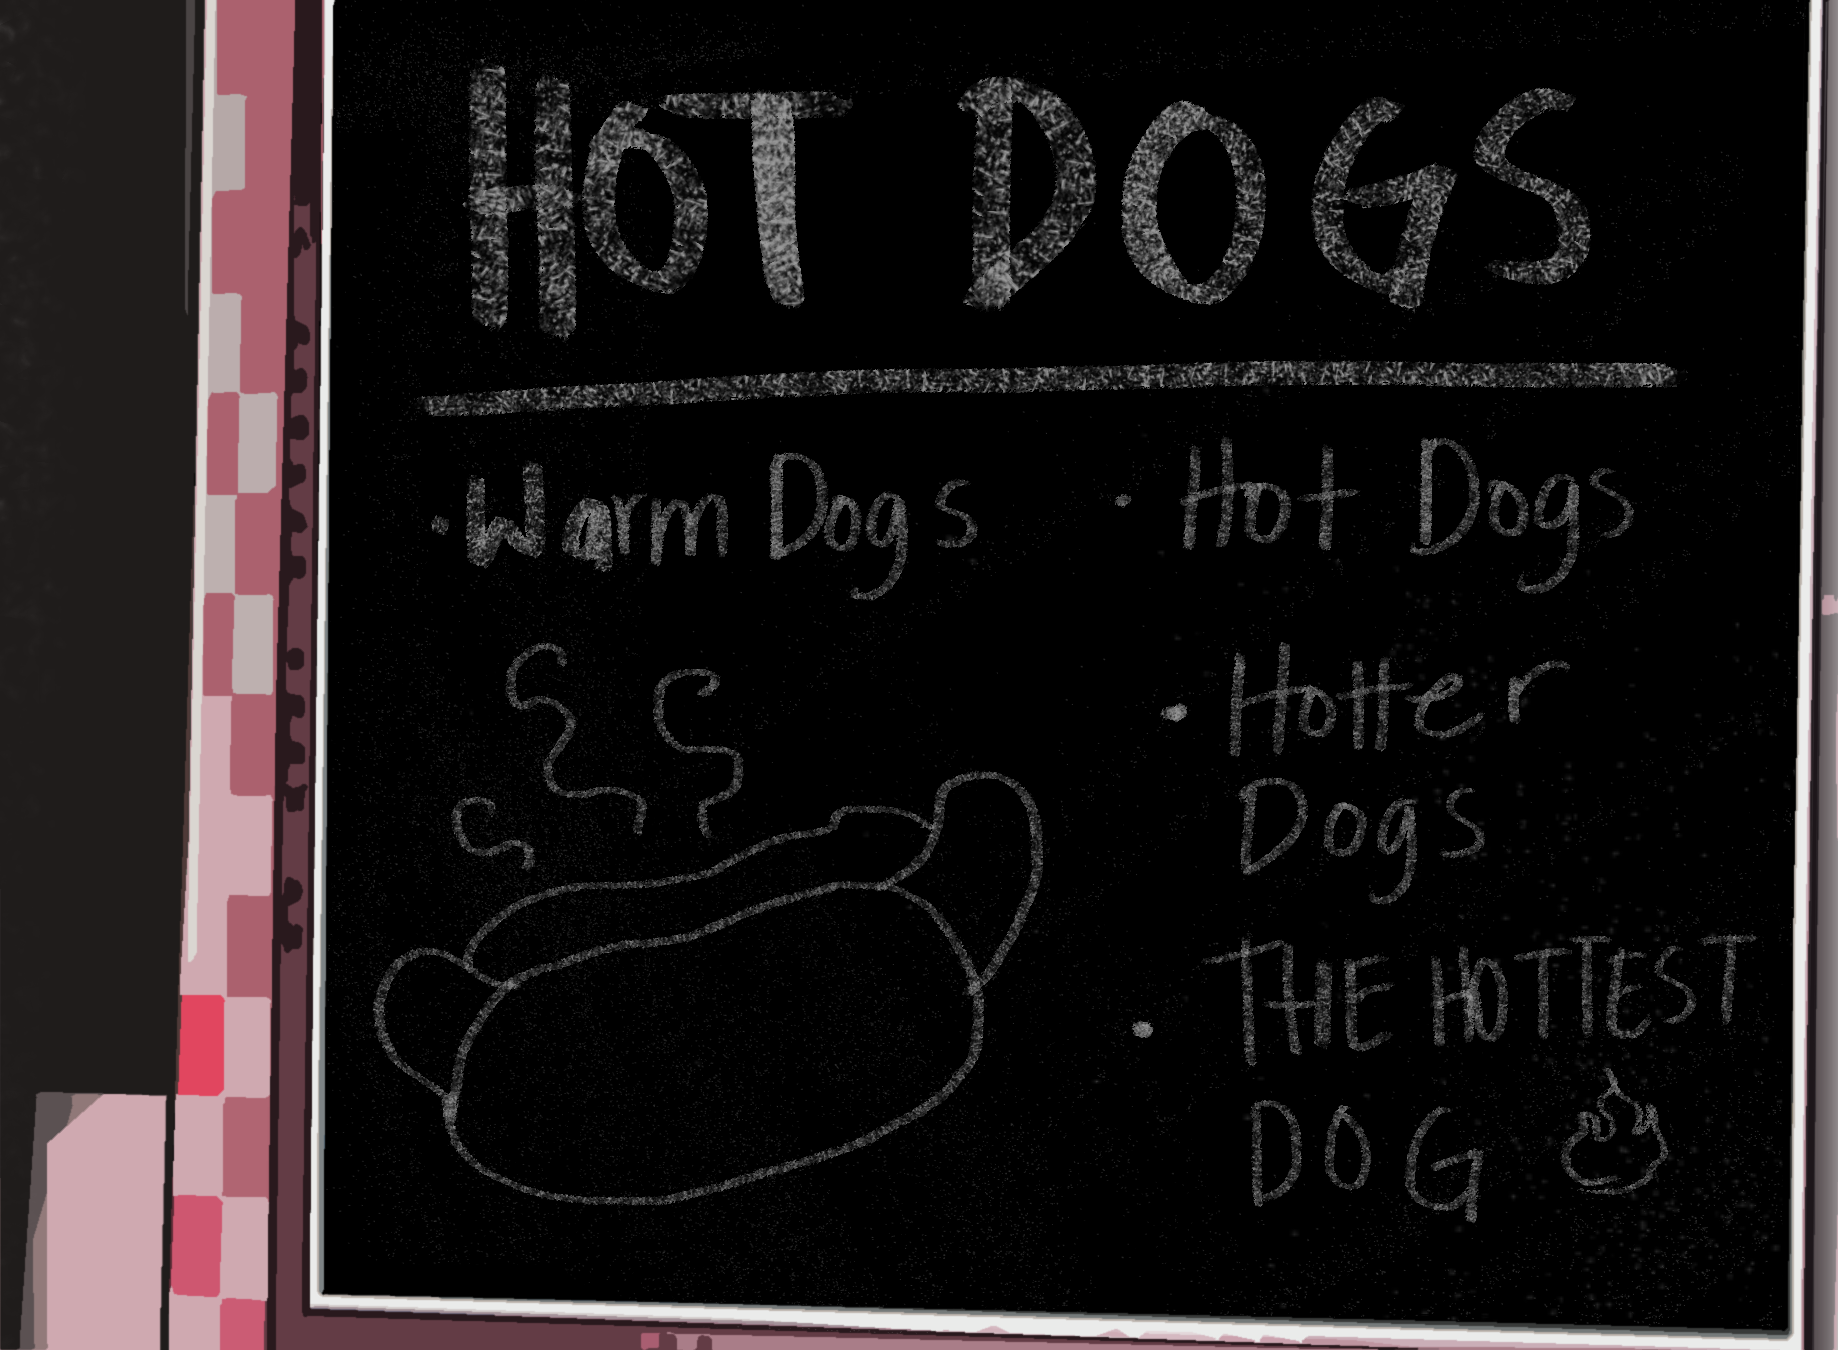 HOT DOGS
· Warm Dogs
· Hot Dogs
· Hotter
Dogs
· THE HOTTEST
DOG